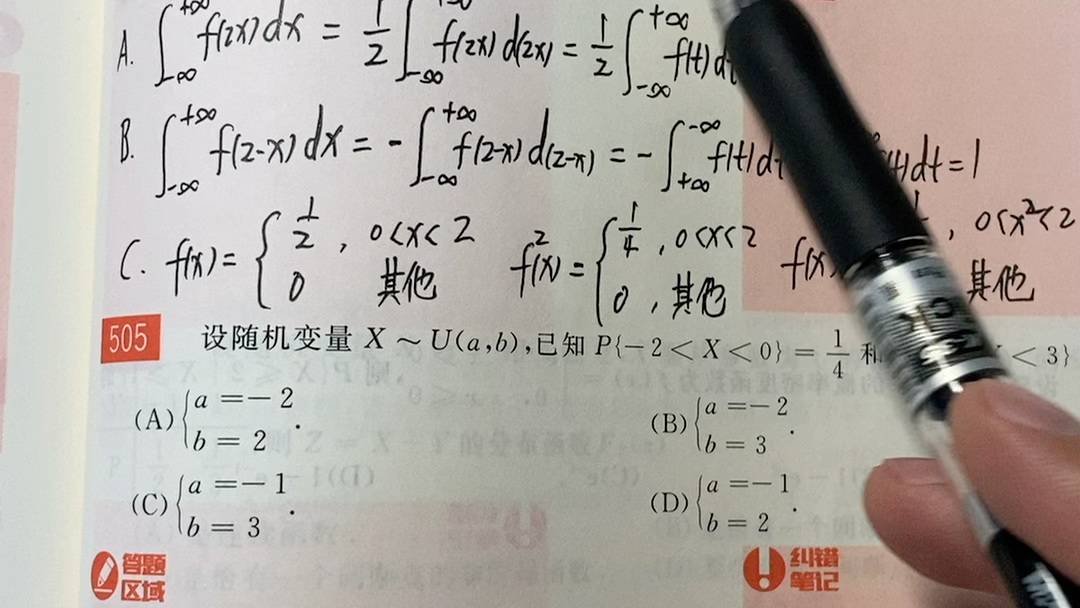 A. ∫_{-∞}^{+∞} f(2x)dx = 1/2 ∫_{-∞}^{+∞} f(2x)d(2x) = 1/2 ∫_{-∞}^{+∞} f(t)dt
B. ∫_{-∞}^{+∞} f(2-x)dx = -∫_{-∞}^{+∞} f(2-x)d(2-x) = -∫_{+∞}^{-∞} f(t)dt f(t)dt = 1
C. f(x) = { 1/2 , 0<x<2 f²(x) = { 1/4 , 0<x<2 f(x , 0<x²<2
0 其他 0 , 其他 其他
505 设随机变量 X ~ U(a,b),已知 P{-2 < X < 0} = 1/4 和 < 3}
(A) { a = -2 b = 2 . (B) { a = -2 b = 3 .
(C) { a = -1 b = 3 . (D) { a = -1 b = 2 .
答题 纠错
区域 笔记